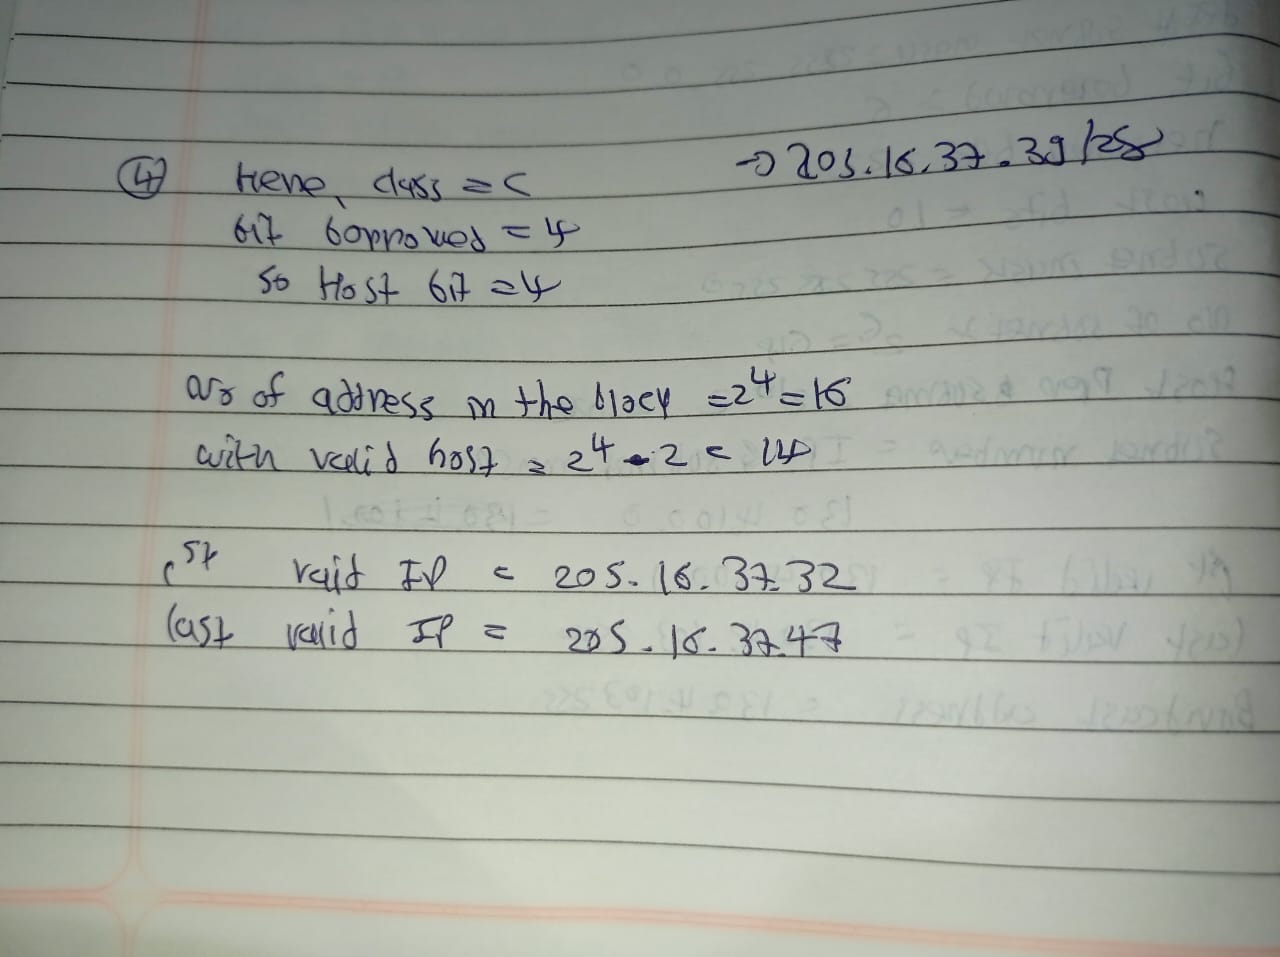 ④ Here, class = C → 205.16.37.39/28
bit borrowed = 4
so Host bit = 4
no of address in the block = 2^4 = 16
with valid host = 2^4 - 2 = 14
1st valid IP = 205.16.37.32
last valid IP = 205.16.37.47